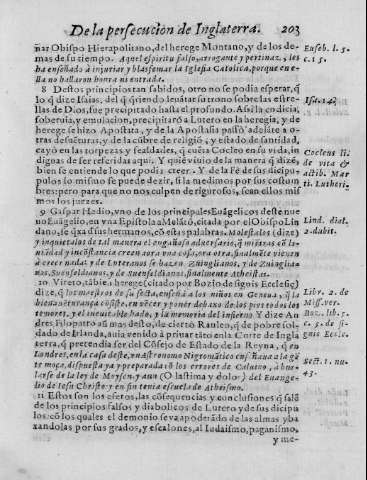 De la persecucion de Inglaterra. 203
ñar Obispo Hierapolitano, del herege Montano, y de los de-
mas de su tiempo. Aquel espiritu falso, arrogante y pertinaz, les
ha enseñado à injuriar y blasfemar la Iglesia Catolica, porque en e-
lla no hallaron honra ni entrada.
Euseb. l. 5.
c. 15.
8 Destos principios tan sabidos, otro no se podia esperar, q̃
lo q̃ dize Isaias, del q̃ queriendo leuãtar su trono sobre las estre-
llas de Dios, fue precipitado hasta el profundo. Assi la codicia,
soberuia, y emulacion, precipitarõ a Lutero en la heregia, y de
herege se hizo Apostata, y de la Apostasia passò adelãte a o-
tras desuẽturas, y de la cũbre de religiõ, y estado de santidad,
cayò en las torpezas y fealdades, q̃ cuẽta Cocleo en su vida, in
dignas de ser referidas aqui. Y quiẽ viuio de la manera q̃ dizẽ,
bien se entiende lo que podia creer. Y de la Fè de sus dicipu-
pulos lo mismo se puede dezir, si la medimos por sus costum-
bres: pero para que no nos culpen de rigurosos, sean ellos mis
mos los juezes.
Isa. 14.
Cocleus li.
de vita &
actib. Mar
ti. Lutheri.
9 Gaspar Hedio, vno de los principales Euãgelicos deste nue
uo Euangelio, en vna Epistola a Melãtõ, citada por el Obispo Lin
dano, se q̃xa dẽ sus hermanos, cõ estas palabras. Molestalos (dize)
y inquietalos de tal manera el engañoso aduersario, q̃ mientras cõ la-
nidad y incõstancia creen aora vna cosa, aora otra, finalmẽte vienen
a creer nada: y de Luteranos se hazen Zuinglianos, y de Zuinglia-
nos, Suenfeldianos, y de Suenfeldianos, finalmente Atheistas.
Lind. dial.
2. dubit.
10 Vireto, tãbiẽ herege (citado por Bozio de signis Ecclesiæ)
dize, q̃ los maestros de su secta, enseñã a los niños en Geneua, q̃ la
bienauenturança cõsiste, en vẽcer y poner debaxo de los pies todos los
temores, y el ineuitable hado, y la memoria del infierno. Y dize An
dreo Filopatro añ mas desto, de cierto Rauleo, q̃ de pobre sol-
dado de Irlanda, auia venido a priuar tãto en la Corte de Ingla
terra, q̃ pretendia ser del Cõsejo de Estado de la Reyna, q̃ en
Londres, en la casa deste, vn astronomo Nigromãtico enseñaua a la gẽ
te moça, dispuesta ya y preparada cõ los errores de Caluino, à bur-
larse de la ley de Moysen, y aun (O lastima y dolor) del Euange-
lio de Iesu Christo: y en fin tenia escuela de Atheismo.
Libr. 2. de
Miss. ver.
Boz. lib. 5.
c. 5. de si-
gnis Eccle.
Sect. 1. nu.
43.
11 Estos son los efetos, las cõsequencias y conclusiones q̃ salẽ
de los principios falsos y diabolicos de Lutero y de sus dicipu
los, cõ los quales el demonio se va apoderãdo de las almas y ba
xandolas por sus grados, y escalones, al Iudaismo, paganismo,
y me-